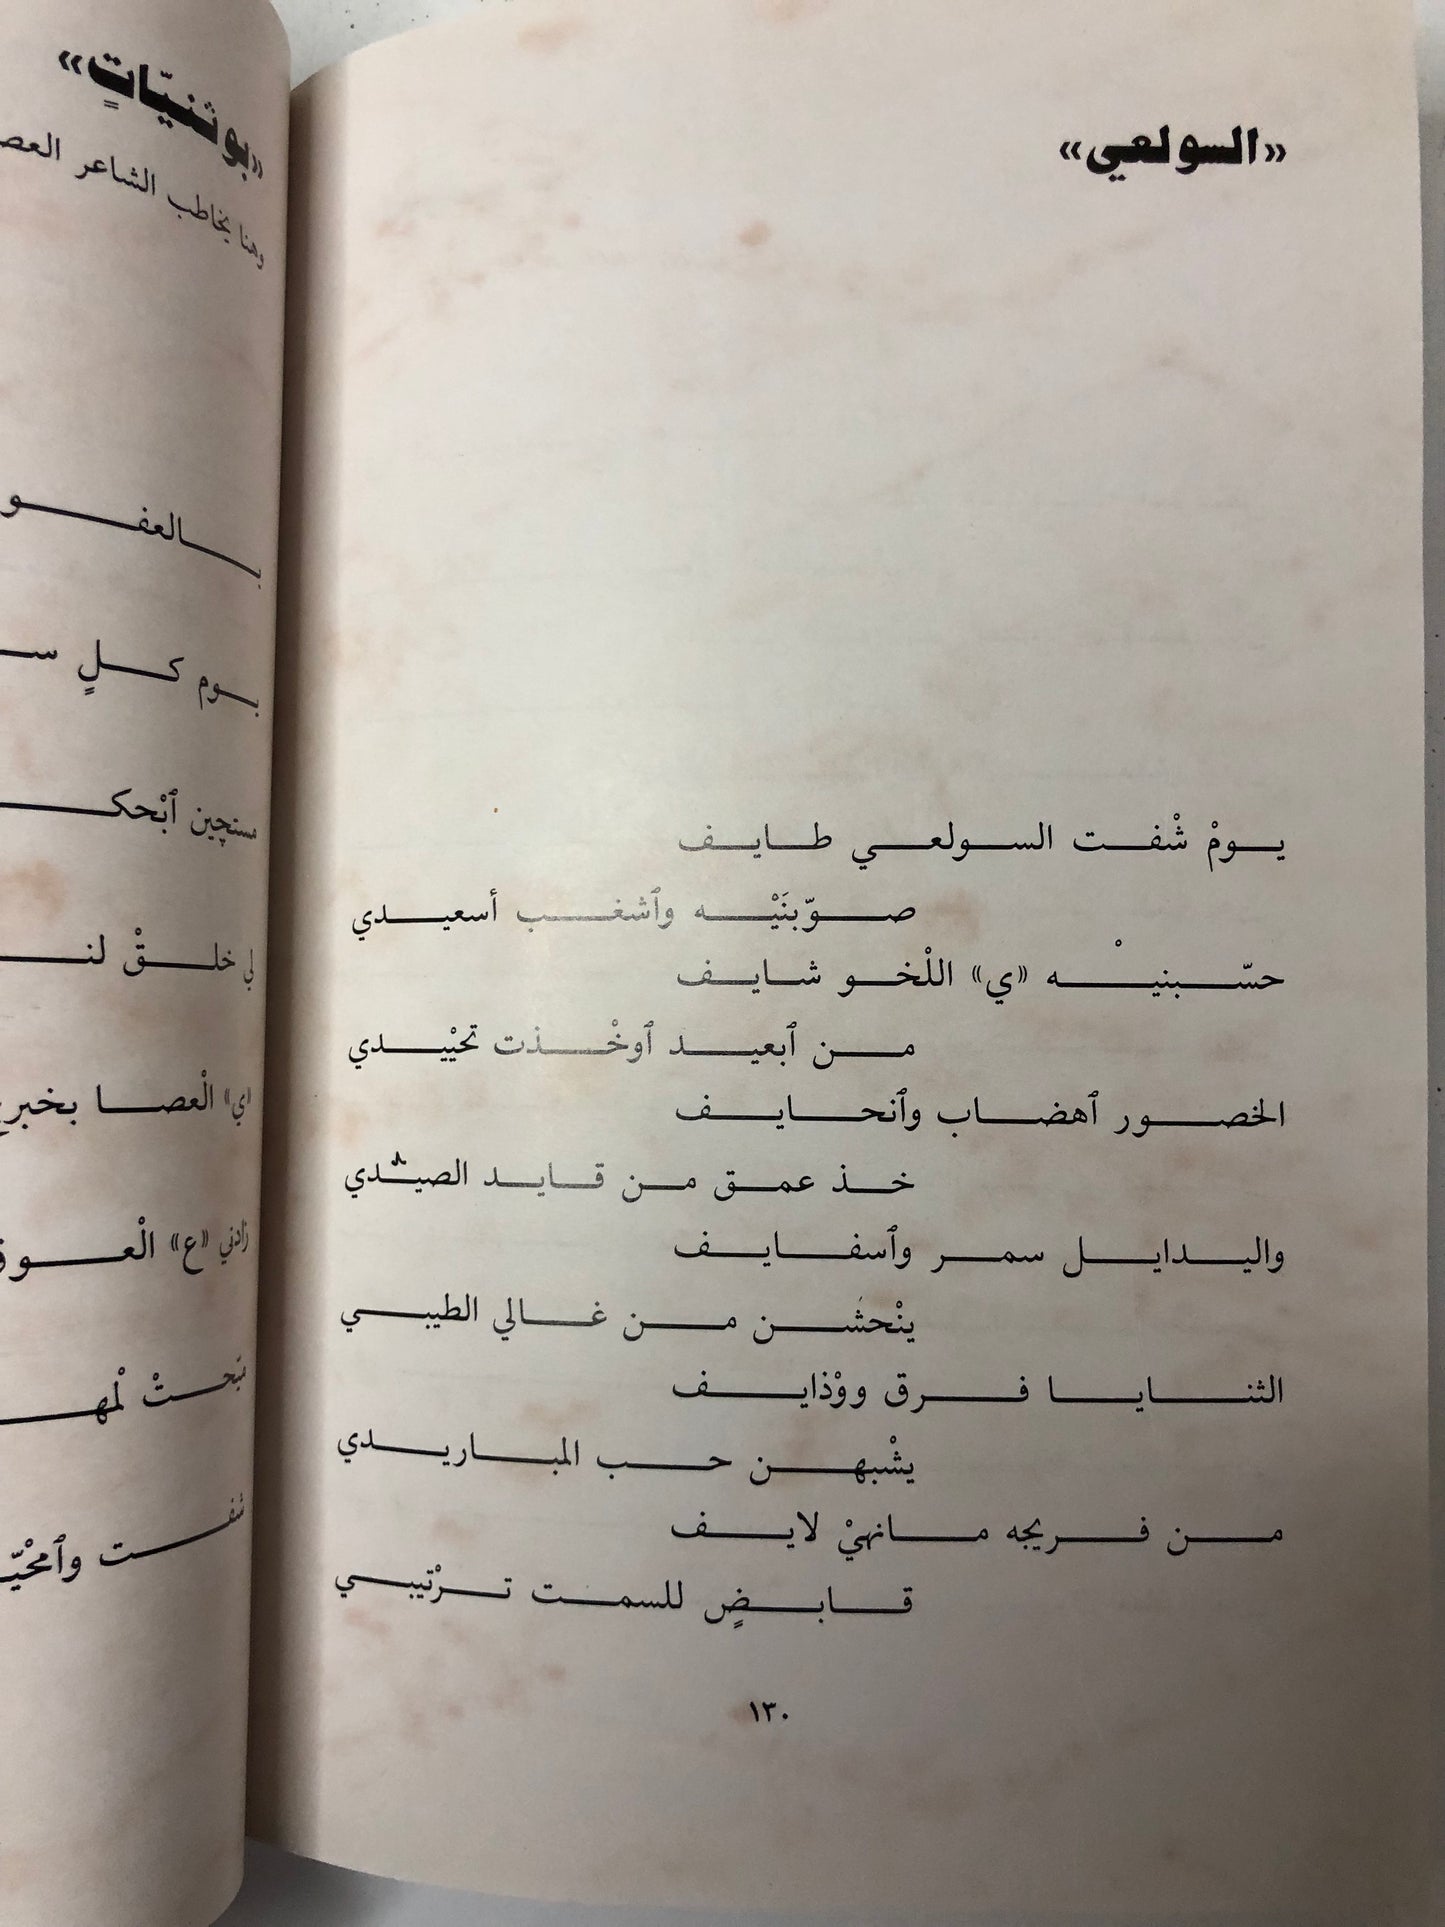 «السولعي»
يومْ شْفت السولعي طايف
صوّبنَيْه وٱشغب أسعيدي
حسّبنيْه «ي» اللْخو شايف
من ٱبعيد ٱوخْذت تحيْيدي
الخصور ٱهضاب وٱنحايف
خذ عمق من قايد الصيدي
واليدايل سمر وٱسفايف
ينْحشن من غالي الطيبي
الثنايا فرق ووْذايف
يشْبهن حب المباريدي
من فريجه مانهيْ لايف
قابضٍ للسمت ترْتيبي
١٣٠
«بو ثنيّاتٍ»
وهنا يخاطب الشاعر
بالعفو
يوم كلٍ
مستچين
لي خلقْ
«ي» الْعصا
زادني «ع»
شفت